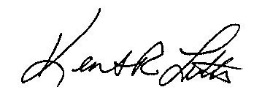 Kent R Litts